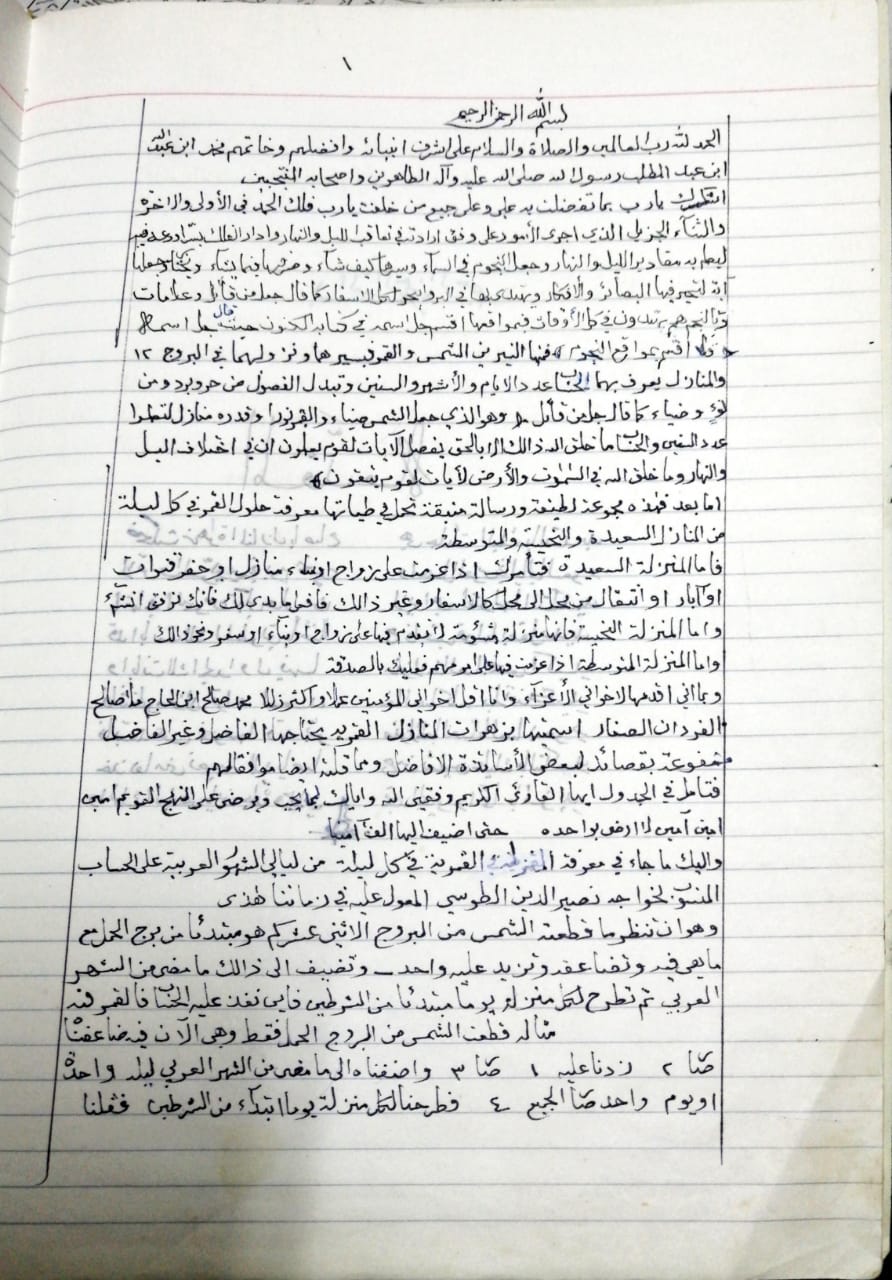 ١
بسم الله الرحمن الرحيم
الحمد لله رب العالمين والصلاة والسلام على اشرف انبيائه وافضلهم وخاتمهم محمد ابن عبد الله
ابن عبد المطلب رسول الله صلى الله عليه وآله الطاهرين واصحابه المنتجبين
اشكرك يا رب بما تفضلت به علي وعلى جميع من خلقت يا رب فلك الحمد في الأولى والاخرة
والثناء الجزيل الذي اجرى الأمور على وفق ارادته في تعاقب الليل والنهار وادار الفلك
ليعلم به مقادير الليل والنهار وجعل النجوم في السماء وسيرها كيف شاء وصرفها فيما يشاء ويختار وجعلها
آية تتحير فيها البصائر والافكار ويهتدى بها في البر والبحر كما قال جل من قائل وعلامات
وبالنجم هم يهتدون في كل الأوقات فبمواقعها اقتسم جل اسمه في كتابه المكنون حيث قال جل اسمه
﴿ فلا أقسم بمواقع النجوم ﴾ فمنها النيرين الشمس والقمر فبسيرهما ونزولهما في البروج ١٢
والمنازل يعرف بهما الحساب عدد الايام والأشهر والسنين وتبدل الفصول من حر وبرد ومن
نوء وضياء كما قال جل من قائل ﴿ وهو الذي جعل الشمس ضياء والقمر نورا وقدره منازل لتعلموا
عدد السنين والحساب ما خلق الله ذالك الا بالحق يفصل الآيات لقوم يعلمون ان في اختلاف اليل
والنهار وما خلق الله في السموت والأرض لآيات لقوم يتقون ﴾
اما بعد فهذه مجموعة لطيفة ورسالة منيقة تحمل في طياتها معرفة حلول القمر في كل ليلة
من المنازل السعيدة والنحيسة والمتوسطة
فاما المنزلة السعيدة فتأمرك اذا عزمت على زواج او بناء منازل او حفر قنوات
او آبار او انتقال من محل الى محل كالاسفار وغير ذالك فافعل ما بدى لك فانك توفق انشاء
واما المنزلة النحيسة فانها منزلة مشؤمة لا يقدم فيها على زواج او بناء او سفر ونحو ذالك
واما المنزلة المتوسطة اذا عزمت فيها على امر مهم فعليك بالصدقة
وبما اني اقدمها لاخواني الأعزاء وانا اقل اخواني المؤمنين عملا واكثر زللا محمد صالح ابن الحاج ملا صالح
الفردان الصفار اسميتها بزهرات المنازل الفريد يحتاجها الفاضل وغير الفاضل
مشفوعة بقصائد لبعض الأساتذة الافاضل ومما قلته ايضا موافقا لهم
فتامل في الجدول ايها القارئ الكريم وفقني الله واياك لما يحب ويرضى على النهج القويم امين
امين آمين لا ارضى بواحدة حتى اضيف اليها الف آمينا
واليك ما جاء في معرفة المنزلة القمرية في كل ليلة من ليالي الشهور العربية على الحساب
المنسوب لخواجه نصير الدين الطوسي المعول عليه في زماننا هذى
وهو ان تنظر ما قطعته الشمس من البروج الاثني عشر كم هو مبتدئا من برج الحمل مع
ما هي فيه وتضاعفه وتزيد عليه واحد وتضيف الى ذالك ما مضى من الشهر
العربي ثم تطرح لكل منزلة يوما مبتدئا من الشرطين فاين نفذ عليه الحساب فالقمر فيه
مثاله قطعت الشمس من البروج الحمل فقط وهي الآن فيه ضاعفناه
صار ٢ زدنا عليه ١ صار ٣ واضفناه الى ما مضى من الشهر العربي ليلة واحدة
او يوم واحد صار الجميع ٤ فطرحنا لكل منزلة يوما ابتداء من الشرطين فقلنا